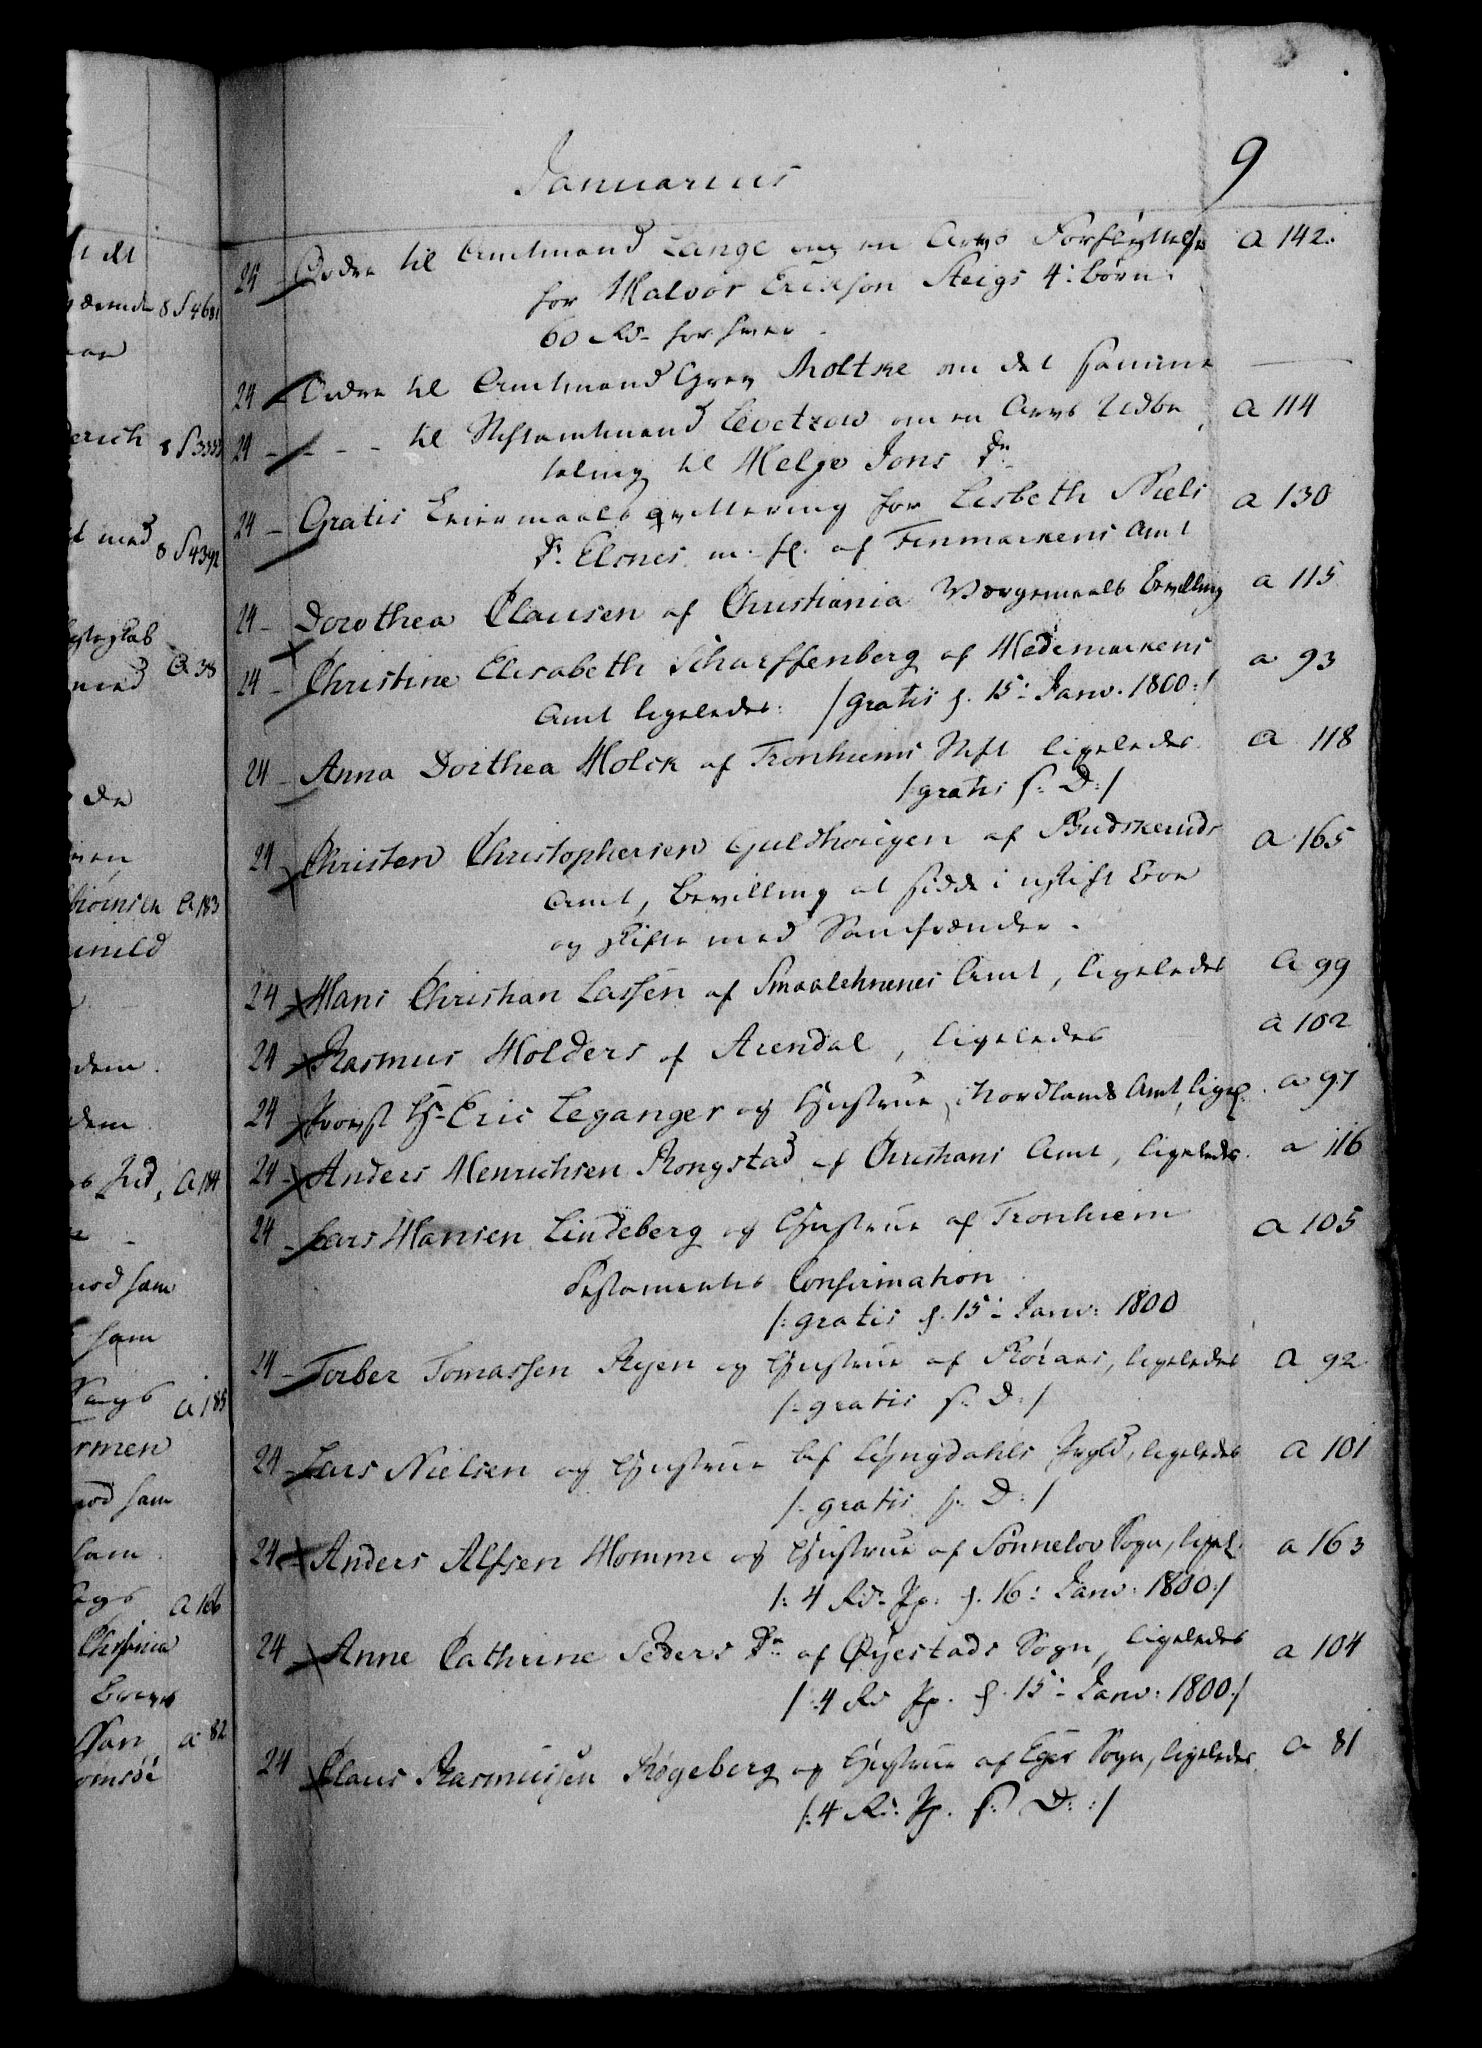 Januarius
9
24 Ordre til Amtmand Lange om en Arvs Forflyttelse a 142.
for Halvor Erichson Steigs 4: børn.
60 Rd for hver.
24 Ordre til Amtmand Grev Moltke om det samme
24 - - - til Stiftamtmand Levetzow om en Arvs Udbe a 114
taling til Helge Jons Dr
24 - Gratis Leiermaals qvittering for Lisbeth Niels a 130
Dr. m. fl. af Finmarkens Amt
24 - Dorothea Clausen af Christiania Værgemaals Bevilling a 115
24 - Christine Elisabeth Scharffenberg af Hedemarkens a 93
Amt ligeledes: /gratis f. 15: Janv. 1800:/
24 - Anna Dorthea Holck af Tronhiems Stift ligeledes a 118
/:gratis f: D:/
24 Christen Christophersen Guldhougen af Budskeruds a 165
Amt, Bevilling at sidde i uskift Boe
og skifte med Samfrænder.
24 Hans Christian Lassen af Smaalehnenes Amt, ligeledes a 99
24 Rasmus Holders af Arendal, ligeledes a 102
24 Provst Hr Eric Leganger og Hustrue, Nordlands Amt, ligel. a 97
24 Anders Henrichsen Rongstad af Christians Amt, ligeledes. a 116
24 Lars Hansen Lindeberg og Hustrue af Tronhiem a 105
Testamentes Confirmation
/: gratis f. 15: Janv: 1800
24 - Torber Tomassen Ryen og Hustrue af Röraas, ligeledes a 92
/: gratis f: D:/
24 Lars Nielsen og Hustrue af Lyngdahls Prgld, ligeledes a 101
/: gratis f: D:/
24 Anders Alfsen Homme og Hustrue af Sonnelov Sogn, ligel. a 163
/: 4 Rd. Pp. f. 16: Janv: 1800:/
24 Anne Cathrine Peders Dr af Øyestads Sogn, ligeledes a 104
/: 4 Rd Pp. f. 15: Janv: 1800:/
24 Claus Rasmussen Røgeberg og Hustrue af Eger Sogn, ligeledes a 81
/: 4 Rd: Pp. f: D: :/